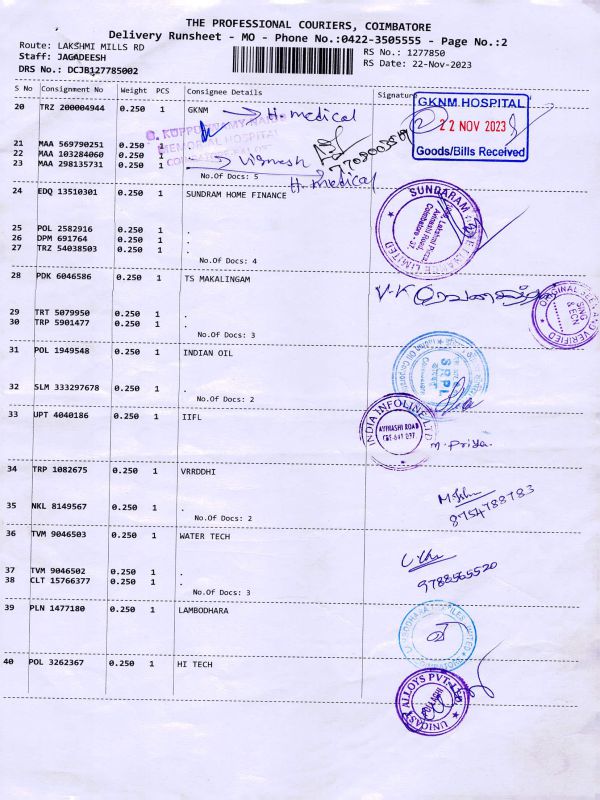 THE PROFESSIONAL COURIERS, COIMBATORE
Delivery Runsheet - MO - Phone No.:0422-3505555 - Page No.:2
Route: LAKSHMI MILLS RD
RS No.: 1277850
Staff: JAGADEESH
RS Date: 22-Nov-2023
DRS No.: DCJB127785002
S No Consignment No Weight PCS Consignee Details Signature
20 TRZ 200004944 0.250 1 GKNM H. medical
GKNM HOSPITAL
22 NOV 2023
Goods/Bills Received
G. KUPPUSWAMY NAIDU
MEMORIAL HOSPITAL
21 MAA 569790251 0.250 1
22 MAA 103284060 0.250 1
23 MAA 298135731 0.250 1
No.Of Docs: 5
H. medical
24 EDQ 13510301 0.250 1 SUNDRAM HOME FINANCE
SUNDARAM HOME FINANCE LIMITED
Avinashi Road,
Coimbatore - 37.
25 POL 2582916 0.250 1 .
26 DPM 691764 0.250 1 .
27 TRZ 54038503 0.250 1 .
No.Of Docs: 4
28 PDK 6046586 0.250 1 TS MAKALINGAM
ORIGINAL SEEN AND VERIFIED
SING & ECN
29 TRT 5079950 0.250 1 .
30 TRP 5901477 0.250 1 .
No.Of Docs: 3
31 POL 1949548 0.250 1 INDIAN OIL
SRPL
32 SLM 333297678 0.250 1 .
No.Of Docs: 2
33 UPT 4040186 0.250 1 IIFL
INDIA INFOLINE LTD
AVINASHI ROAD
CBE-641 037
n. priya.
34 TRP 1082675 0.250 1 VRRDDHI
8754788783
35 NKL 8149567 0.250 1 .
No.Of Docs: 2
36 TVM 9046503 0.250 1 WATER TECH
9788565520
37 TVM 9046502 0.250 1 .
38 CLT 15766377 0.250 1 .
No.Of Docs: 3
39 PLN 1477180 0.250 1 LAMBODHARA
LAMBODHARA TEXTILES LIMITED
40 POL 3262367 0.250 1 HI TECH
UNICAST ALLOYS PVT. LTD.